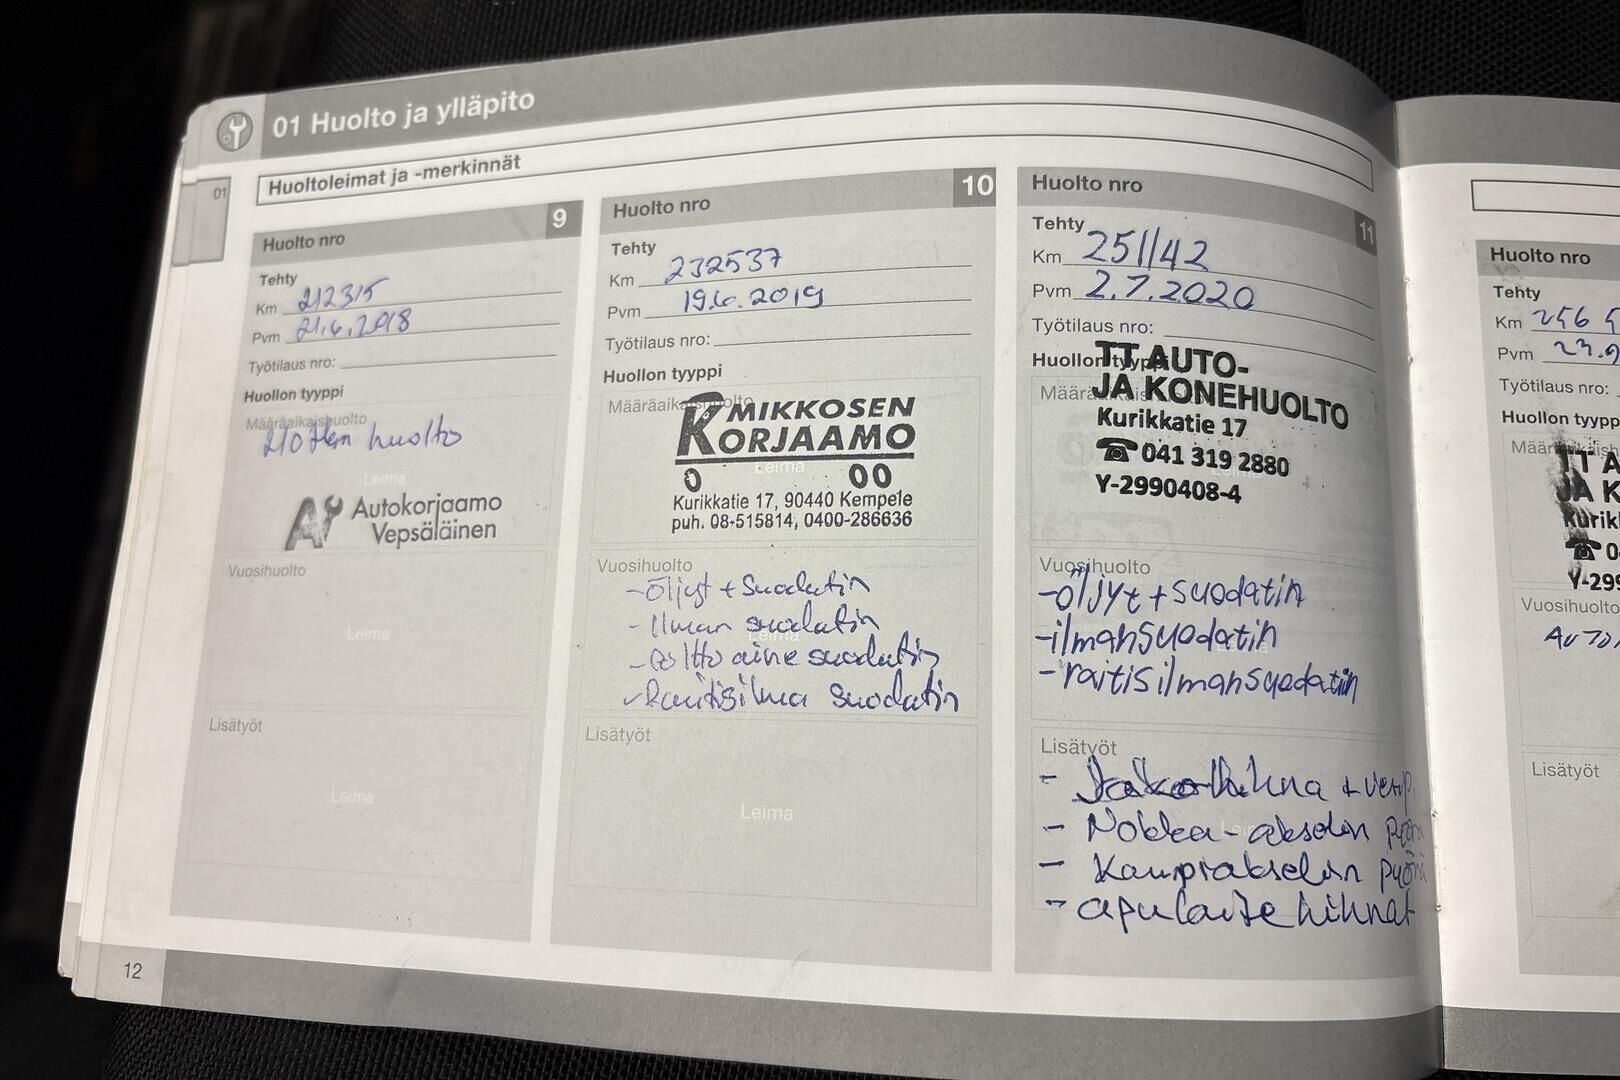 01 Huolto ja ylläpito
Huoltoleimat ja -merkinnät
01
Huolto nro 9
Tehty
Km 212315
Pvm 21.6.2018
Työtilaus nro:
Huollon tyyppi
Määräaikaishuolto
210 tkm huolto
Leima
Autokorjaamo
Vepsäläinen
Vuosihuolto
Leima
Lisätyöt
Leima
12
Huolto nro 10
Tehty
Km 232537
Pvm 19.6.2019
Työtilaus nro:
Huollon tyyppi
Määräaikaishuolto
MIKKOSEN
KORJAAMO
Leima
Kurikkatie 17, 90440 Kempele
puh. 08-515814, 0400-286636
Vuosihuolto
-Öljyt + Suodatin
- Ilman suodatin
Leima
- Poltto aine suodatin
- Raitisilma suodatin
Lisätyöt
Leima
Huolto nro 11
Tehty
Km 251142
Pvm 2.7.2020
Työtilaus nro:
Huollon tyyppi
TT AUTO-
JA KONEHUOLTO
Kurikkatie 17
☎ 041 319 2880
Y-2990408-4
Vuosihuolto
-öljyt + suodatin
-ilmansuodatin
-raitisilmansuodatin
Lisätyöt
- Jakohihna +
- Nokka-akselin pyörä
- Kampiakselin pyörä
- apulaite hihnat
Huolto nro
Tehty
Km 256
Pvm
Työtilaus nro:
Huollon typp
TT A
JA K
Kurik
☎ 0
Y-299
Vuosihuolto
Lisätyöt